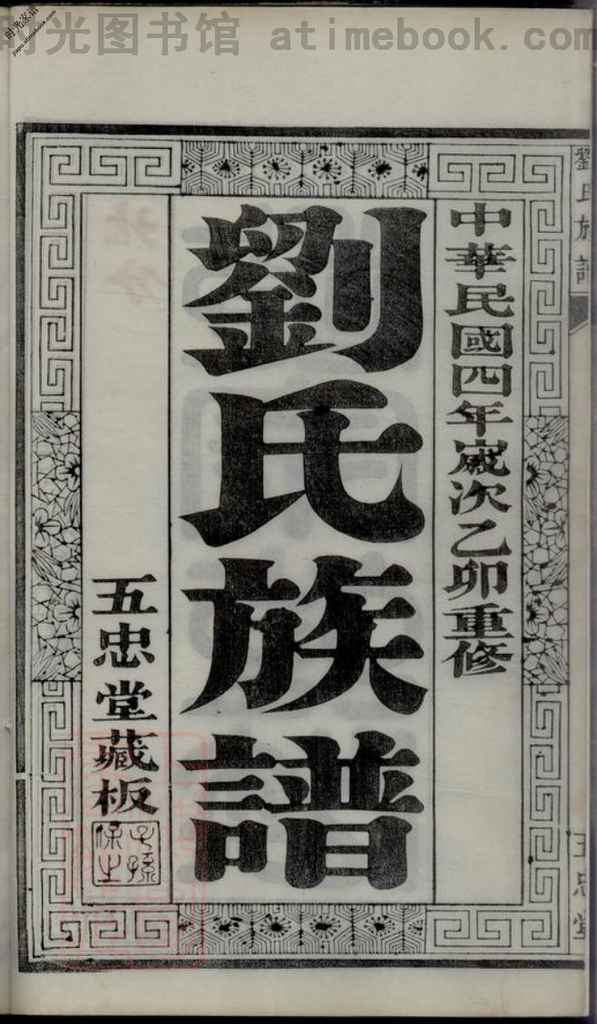 时光图书馆 atimebook.com
劉氏族譜
五忠堂
中華民國四年歲次乙卯重修
劉氏族譜
五忠堂藏板
子孫
保之